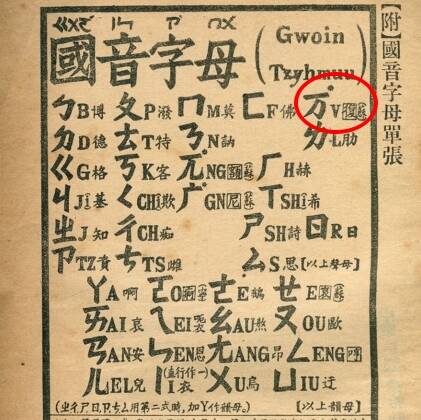 ㄍㄨㄛ ㄧㄣ ㄗ ㄇㄨ
國音字母 (Gwoin Tzyhmuu)
[附]國音字母單張
ㄅB博 ㄆP潑 ㄇM莫 ㄈF佛 ㄪV
ㄉD德 ㄊT特 ㄋN訥 ㄌL肋
ㄍG格 ㄎK客 ㄫNG ㄏH赫
ㄐJi基 ㄑCHi欺 ㄬGN尼 ㄒSHi希
ㄓJ知 ㄔCH痴 ㄕSH詩 ㄖR日
ㄗTZ資 ㄘTS雌 ㄙS思 [以上聲母]
ㄚA啊 ㄛO ㄜE鵝 ㄝE
ㄞAI哀 ㄟEI ㄠAU熬 ㄡOU歐
ㄢAN安 ㄣEN恩 ㄤANG昂 ㄥENG
ㄦEL兒 ㄧ(直行作一)I衣 ㄨU烏 ㄩIU迂
(ㄓ,ㄔ,ㄕ,ㄖ,ㄗ,ㄘ,ㄙ用第二式時,加Y作韻母.) [以上韻母]